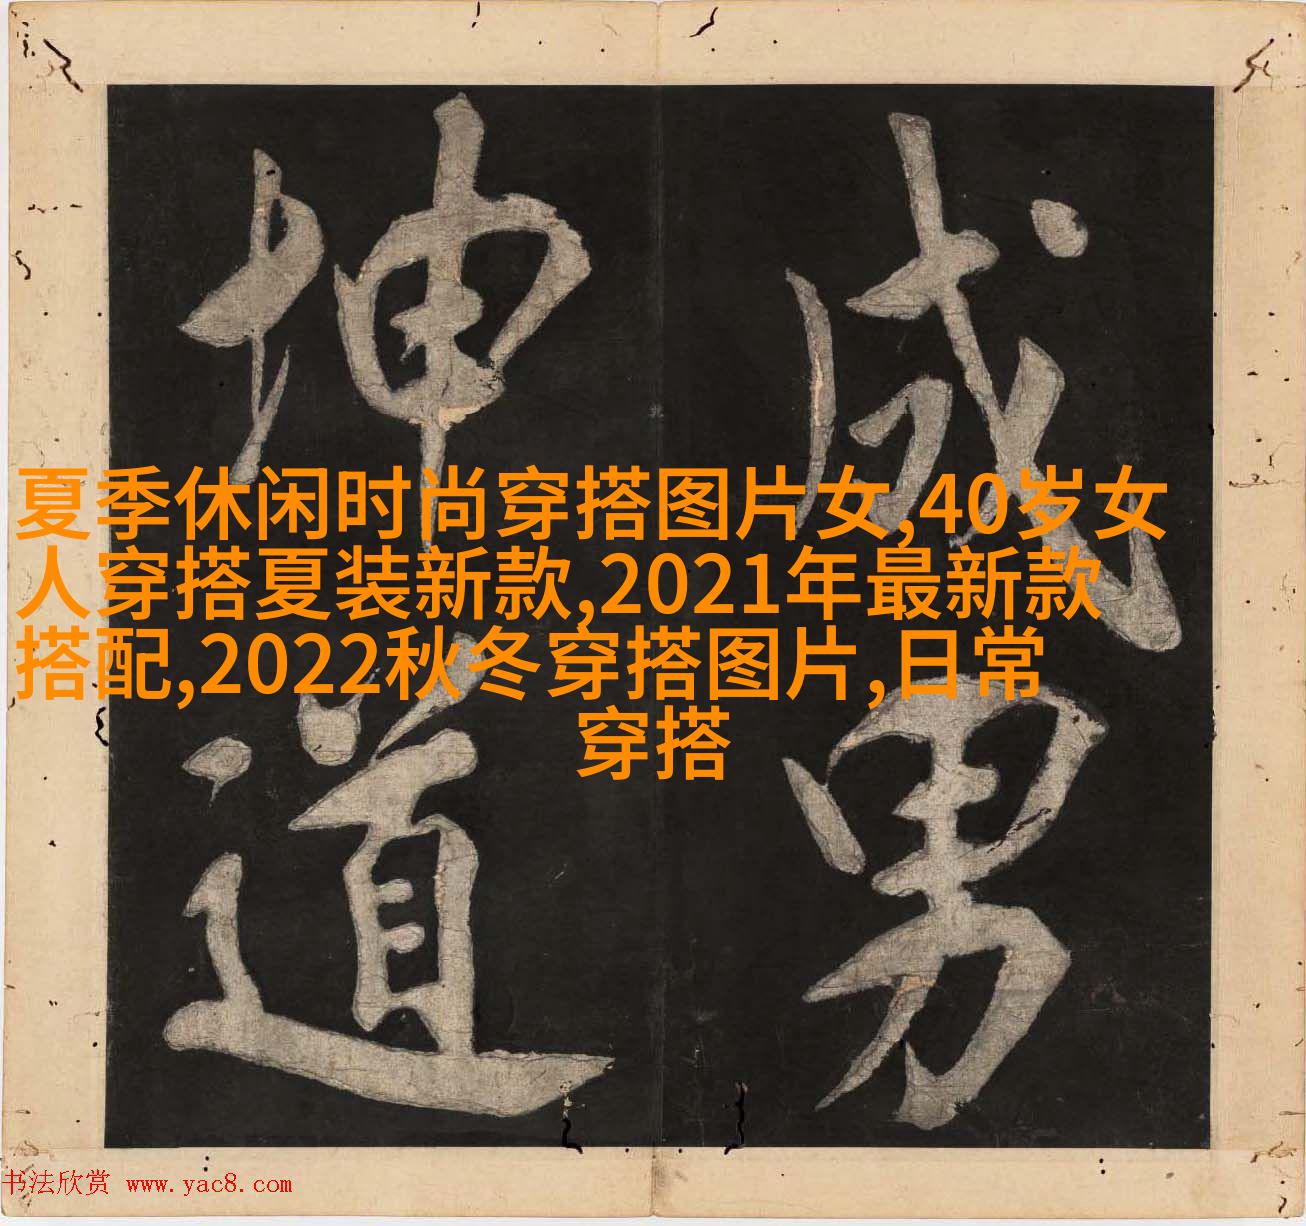 成男
坤道
夏季休闲时尚穿搭图片女,40岁女
人穿搭夏装新款,2021年最新款
搭配,2022秋冬穿搭图片,日常
穿搭
书法欣赏 www.yac8.com